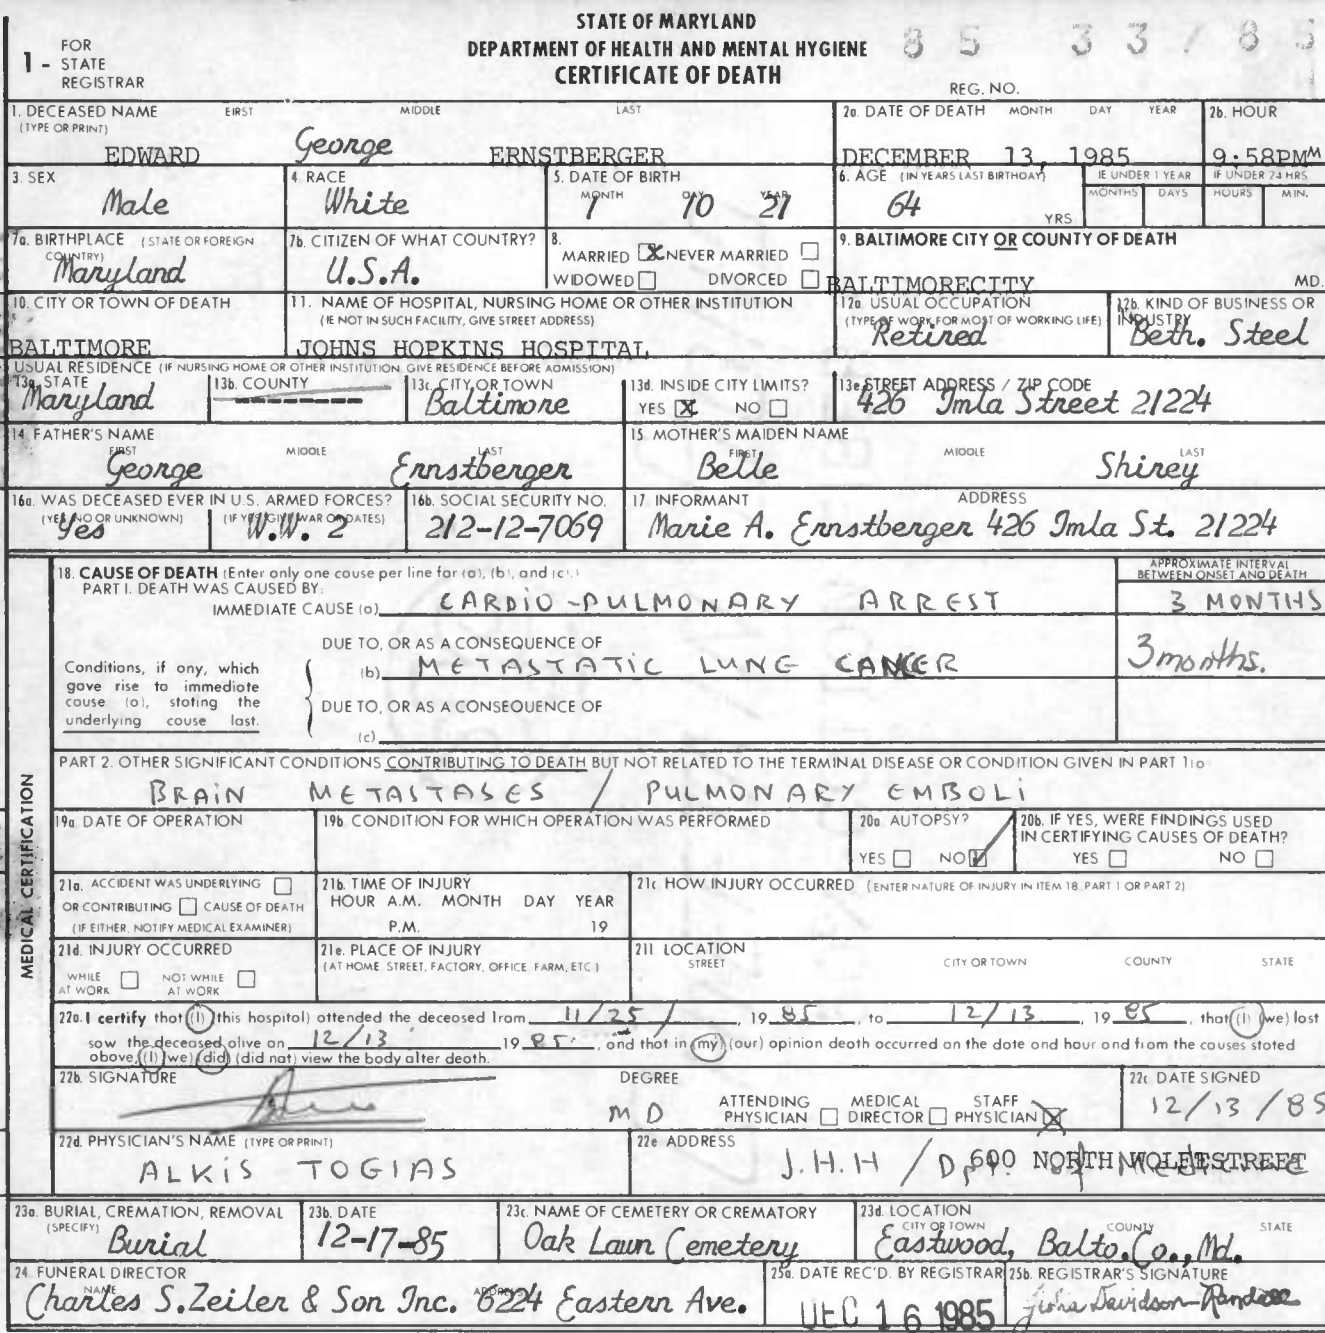 STATE OF MARYLAND
DEPARTMENT OF HEALTH AND MENTAL HYGIENE
CERTIFICATE OF DEATH
1 - FOR STATE REGISTRAR
85 33785
REG. NO.
1. DECEASED NAME FIRST MIDDLE LAST
(TYPE OR PRINT)
EDWARD George ERNSTBERGER
2a. DATE OF DEATH MONTH DAY YEAR
DECEMBER 13, 1985
2b. HOUR
9:58PM M
3. SEX
Male
4. RACE
White
5. DATE OF BIRTH
MONTH DAY YEAR
1 10 21
6. AGE (IN YEARS LAST BIRTHDAY)
64
YRS
IF UNDER 1 YEAR
MONTHS DAYS
IF UNDER 24 HRS
HOURS MIN.
7a. BIRTHPLACE (STATE OR FOREIGN COUNTRY)
Maryland
7b. CITIZEN OF WHAT COUNTRY?
U.S.A.
8.
MARRIED X NEVER MARRIED
WIDOWED DIVORCED
9. BALTIMORE CITY OR COUNTY OF DEATH
BALTIMORECITY MD.
10. CITY OR TOWN OF DEATH
BALTIMORE
11. NAME OF HOSPITAL, NURSING HOME OR OTHER INSTITUTION
(IF NOT IN SUCH FACILITY, GIVE STREET ADDRESS)
JOHNS HOPKINS HOSPITAL
12a. USUAL OCCUPATION
(TYPE OF WORK FOR MOST OF WORKING LIFE)
Retired
12b. KIND OF BUSINESS OR INDUSTRY
Beth. Steel
USUAL RESIDENCE (IF NURSING HOME OR OTHER INSTITUTION GIVE RESIDENCE BEFORE ADMISSION)
13a. STATE
Maryland
13b. COUNTY
13c. CITY OR TOWN
Baltimore
13d. INSIDE CITY LIMITS?
YES X NO
13e STREET ADDRESS / ZIP CODE
426 Imla Street 21224
14. FATHER'S NAME
FIRST MIDDLE LAST
George Ernstberger
15 MOTHER'S MAIDEN NAME
FIRST MIDDLE LAST
Belle Shirey
16a. WAS DECEASED EVER IN U.S. ARMED FORCES?
(YES, NO OR UNKNOWN) (IF YES, GIVE WAR OR DATES)
Yes W.W. 2
16b. SOCIAL SECURITY NO.
212-12-7069
17. INFORMANT ADDRESS
Marie A. Ernstberger 426 Imla St. 21224
MEDICAL CERTIFICATION
18. CAUSE OF DEATH (Enter only one cause per line for (a), (b), and (c).)
PART I. DEATH WAS CAUSED BY:
APPROXIMATE INTERVAL
BETWEEN ONSET AND DEATH
IMMEDIATE CAUSE (a) CARDIO-PULMONARY ARREST 3 MONTHS
DUE TO, OR AS A CONSEQUENCE OF
(b) METASTATIC LUNG CANCER 3 months.
Conditions, if any, which
gave rise to immediate
cause (a), stating the
underlying cause last.
DUE TO, OR AS A CONSEQUENCE OF
(c)
PART 2. OTHER SIGNIFICANT CONDITIONS CONTRIBUTING TO DEATH BUT NOT RELATED TO THE TERMINAL DISEASE OR CONDITION GIVEN IN PART 1(a
BRAIN METASTASES / PULMONARY EMBOLI
19a DATE OF OPERATION
19b CONDITION FOR WHICH OPERATION WAS PERFORMED
20a AUTOPSY?
YES NO
20b. IF YES, WERE FINDINGS USED
IN CERTIFYING CAUSES OF DEATH?
YES NO
21a. ACCIDENT WAS UNDERLYING
OR CONTRIBUTING CAUSE OF DEATH
(IF EITHER, NOTIFY MEDICAL EXAMINER)
21b. TIME OF INJURY
HOUR A.M. MONTH DAY YEAR
P.M. 19
21c HOW INJURY OCCURRED (ENTER NATURE OF INJURY IN ITEM 18, PART 1 OR PART 2)
21d. INJURY OCCURRED
WHILE AT WORK NOT WHILE AT WORK
21e. PLACE OF INJURY
(AT HOME, STREET, FACTORY, OFFICE, FARM, ETC.)
21f LOCATION
STREET CITY OR TOWN COUNTY STATE
22a. I certify that (I) (this hospital) attended the deceased from 11/25/, 19 85, to 12/13, 19 85, that (I) (we) last
saw the deceased alive on 12/13 19 85, and that in (my) (our) opinion death occurred on the date and hour and from the causes stated
above, (I) (we) (did) (did not) view the body after death.
22b. SIGNATURE
DEGREE
MD
ATTENDING PHYSICIAN
MEDICAL DIRECTOR
STAFF PHYSICIAN X
22c DATE SIGNED
12/13/85
22d. PHYSICIAN'S NAME (TYPE OR PRINT)
ALKIS TOGIAS
22e ADDRESS
J.H.H / Dpt. of MEDICINE
600 NORTH WOLFESTREET
23a. BURIAL, CREMATION, REMOVAL
(SPECIFY)
Burial
23b. DATE
12-17-85
23c. NAME OF CEMETERY OR CREMATORY
Oak Lawn Cemetery
23d. LOCATION
CITY OR TOWN COUNTY STATE
Eastwood, Balto. Co., Md.
24. FUNERAL DIRECTOR
NAME ADDRESS
Charles S. Zeiler & Son Inc. 6224 Eastern Ave.
25a. DATE REC'D. BY REGISTRAR
DEC 16 1985
25b. REGISTRAR'S SIGNATURE
Davidson-Randall